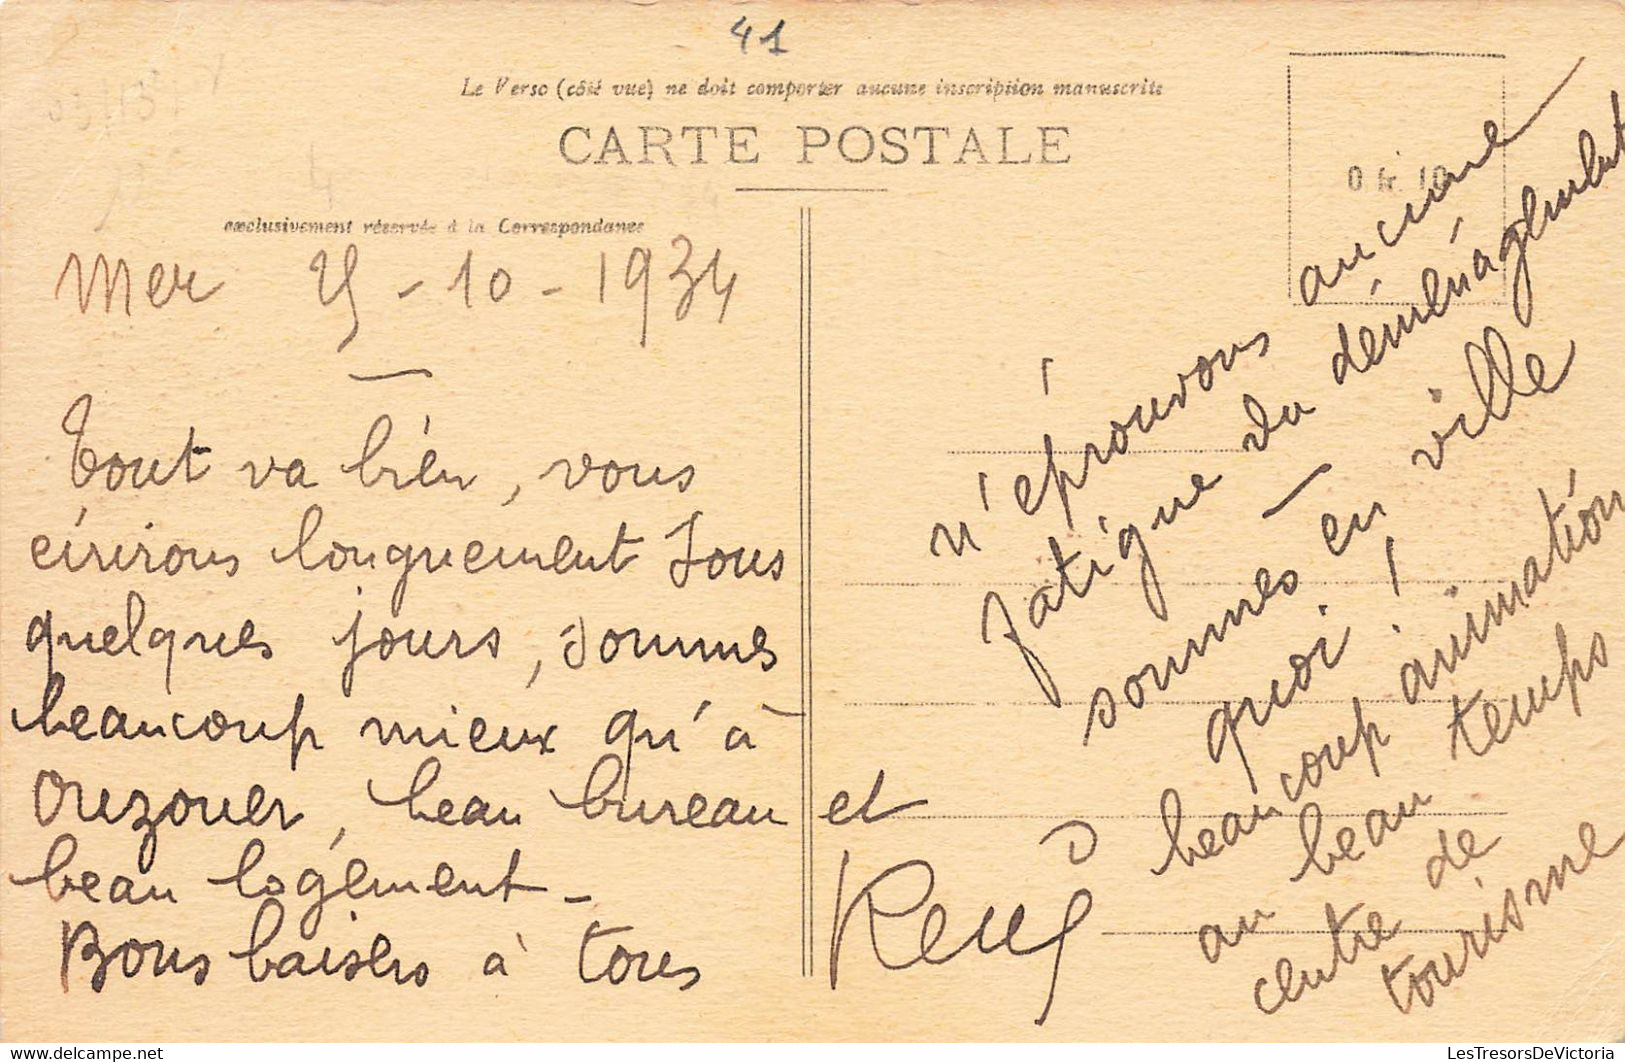 41
Le Verso (côté vue) ne doit comporter aucune inscription manuscrite
CARTE POSTALE
0 fr. 10
exclusivement réservée à la Correspondance
Mer 25-10-1934
Tout va bien, vous
écrirons longuement sous
quelques jours, sommes
beaucoup mieux qu'à
Ouzouer, beau bureau et
beau logement -
Bons baisers à tous
René
n'éprouvons aucune
fatigue du déménagement
sommes en ville
quoi !
beaucoup animation
au beau temps
centre de
tourisme
LesTresorsDeVictoria